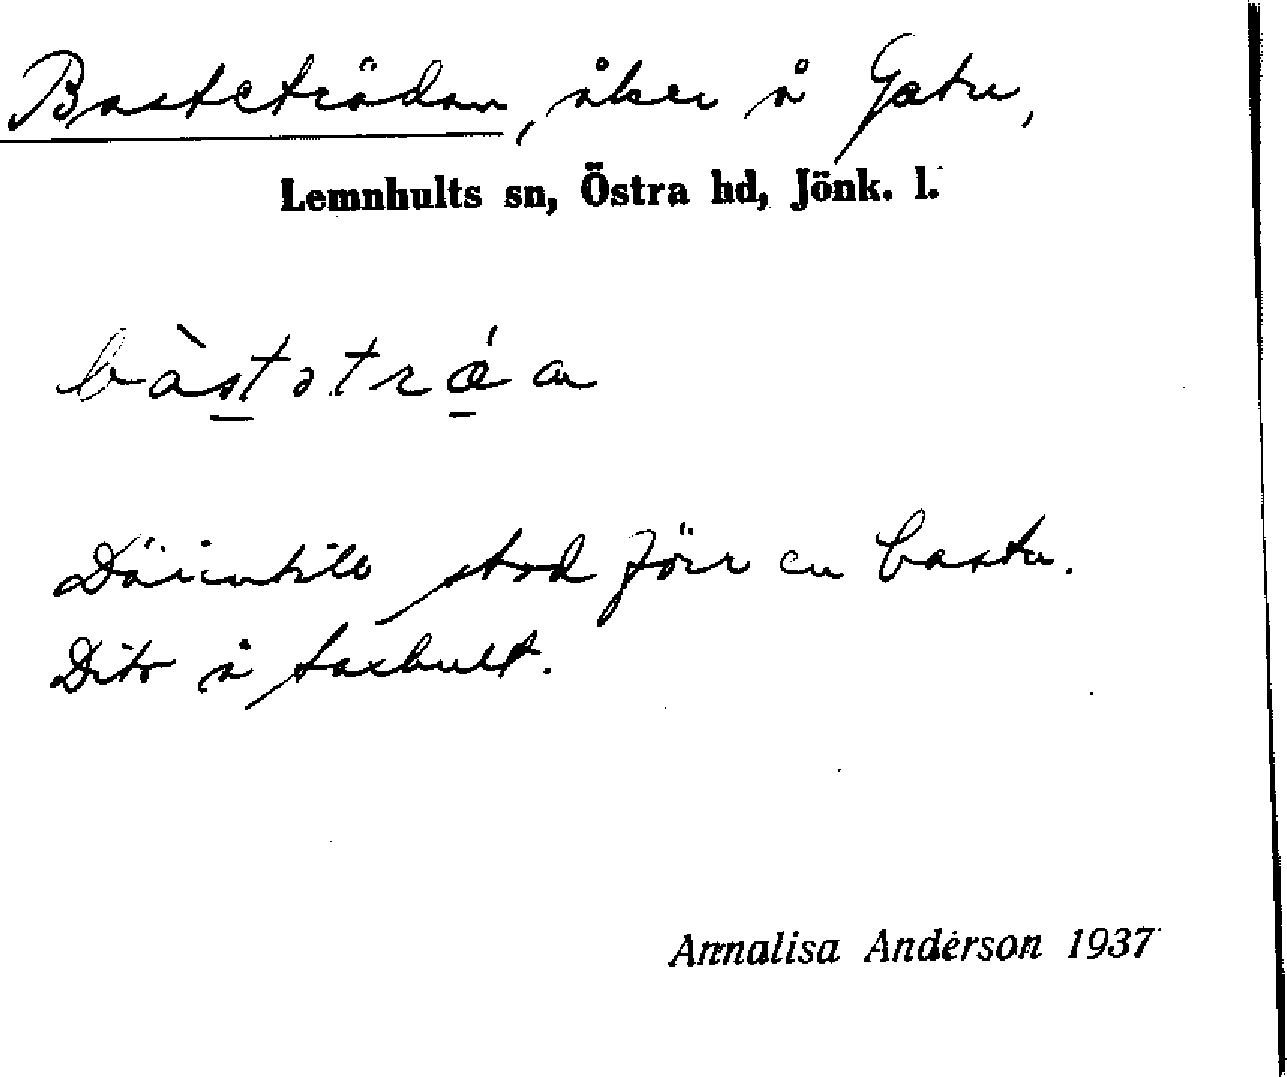 Basteträdan, åker å Gatu,
Lemnhults sn, Östra hd, Jönk. l.
bàstətrǽan
Därintill stod förr en bastu.
Dito å
Annalisa Anderson 1937